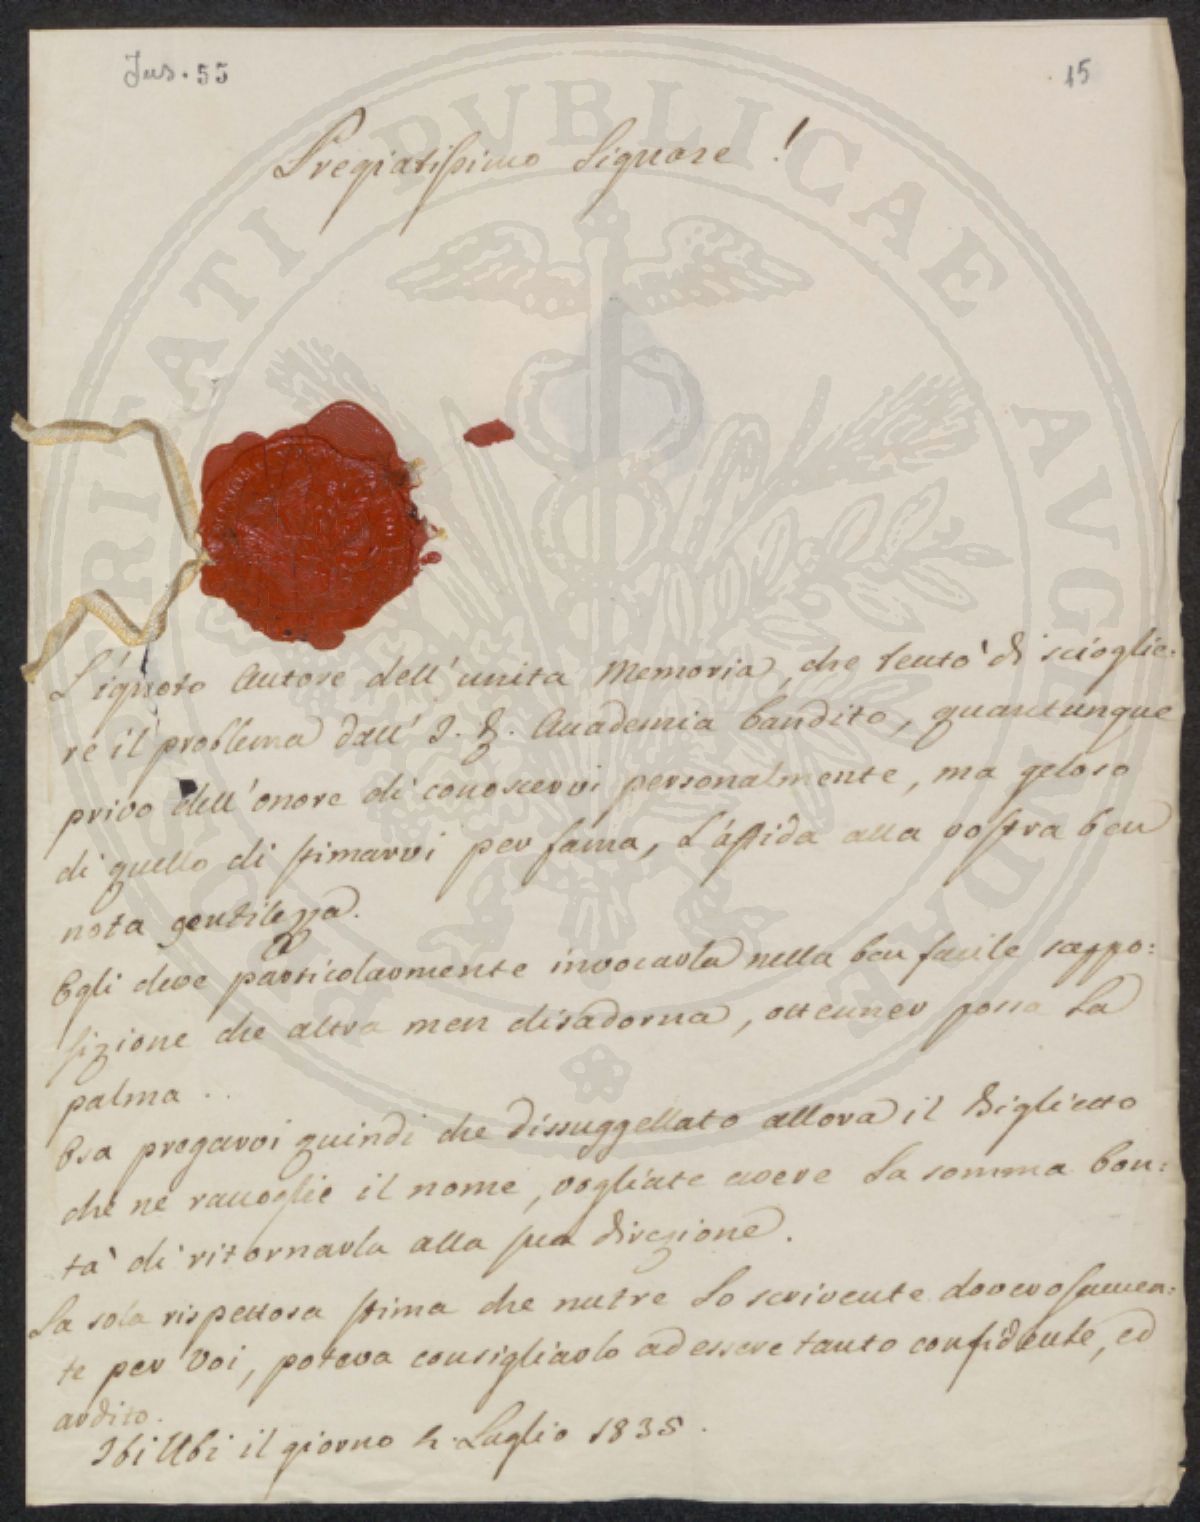 Jus. 55
15
Pregiatissimo Signore!
L'ignoto Autore dell'unita Memoria, che tentò di scioglie:
re il problema dall' I. R. Accademia bandito, quantunque
privo dell'onore di conoscervi personalmente, ma geloso
di quello di stimarvi per fama, L'affida alla vostra ben
nota gentilezza.
Egli deve particolarmente invocarla nella ben facile suppo:
sizione che altra men disadorna, ottenner possa La
palma..
Osa pregarvi quindi che dissuggellato allora il Biglietto
che ne raccoglie il nome, vogliate avere La somma bon:
tà di ritornarla alla sua direzione.
La sola rispettosa stima che nutre Lo scrivente doverosamen:
te per Voi, poteva consigliarlo ad essere tanto confidente, ed
ardito.
Ibi Ubi il giorno 2. Luglio 1835.
PROSPERITATI PVBLICAE AVGENDAE